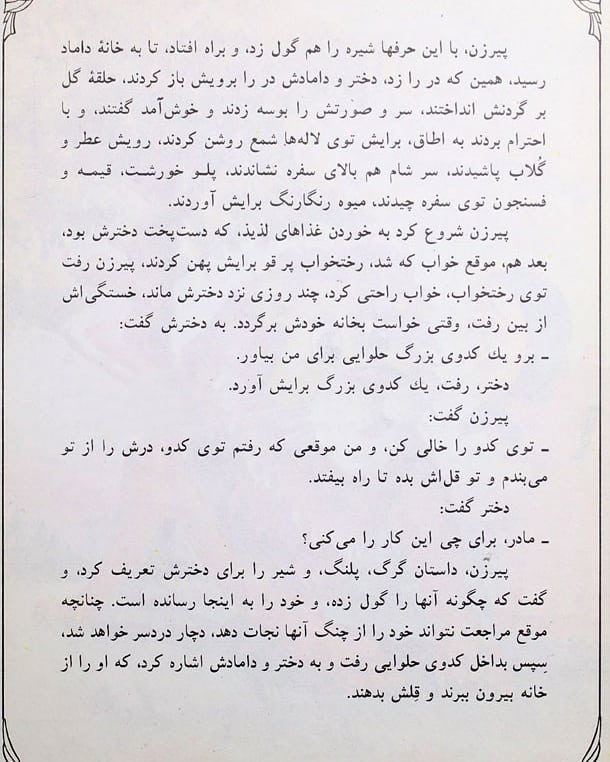 پیرزن، با این حرفها شیره را هم گول زد، و براه افتاد، تا به خانهٔ داماد
رسید، همین که در را زد، دختر و دامادش در را برویش باز کردند، حلقهٔ گل
بر گردنش انداختند، سر و صورتش را بوسه زدند و خوش‌آمد گفتند، و با
احترام بردند به اطاق، برایش توی لاله‌ها شمع روشن کردند، رویش عطر و
گُلاب پاشیدند، سر شام هم بالای سفره نشاندند، پلو خورشت، قیمه و
فسنجون توی سفره چیدند، میوه رنگارنگ برایش آوردند.
پیرزن شروع کرد به خوردن غذاهای لذیذ، که دست‌پخت دخترش بود،
بعد هم، موقع خواب که شد، رختخواب پر قو برایش پهن کردند، پیرزن رفت
توی رختخواب، خواب راحتی کرد، چند روزی نزد دخترش ماند، خستگی‌اش
از بین رفت، وقتی خواست بخانه خودش برگردد. به دخترش گفت:
ـ برو یك کدوی بزرگ حلوایی برای من بیاور.
دختر، رفت، یك کدوی بزرگ برایش آورد.
پیرزن گفت:
ـ توی کدو را خالی کن، و من موقعی که رفتم توی کدو، درش را از تو
می‌بندم و تو قل‌اش بده تا راه بیفتد.
دختر گفت:
ـ مادر، برای چی این کار را می‌کنی؟
پیرزن، داستان گرگ، پلنگ، و شیر را برای دخترش تعریف کرد، و
گفت که چگونه آنها را گول زده، و خود را به اینجا رسانده است. چنانچه
موقع مراجعت نتواند خود را از چنگ آنها نجات دهد، دچار دردسر خواهد شد،
سِپس بداخل کدوی حلوایی رفت و به دختر و دامادش اشاره کرد، که او را از
خانه بیرون ببرند و قِلش بدهند.